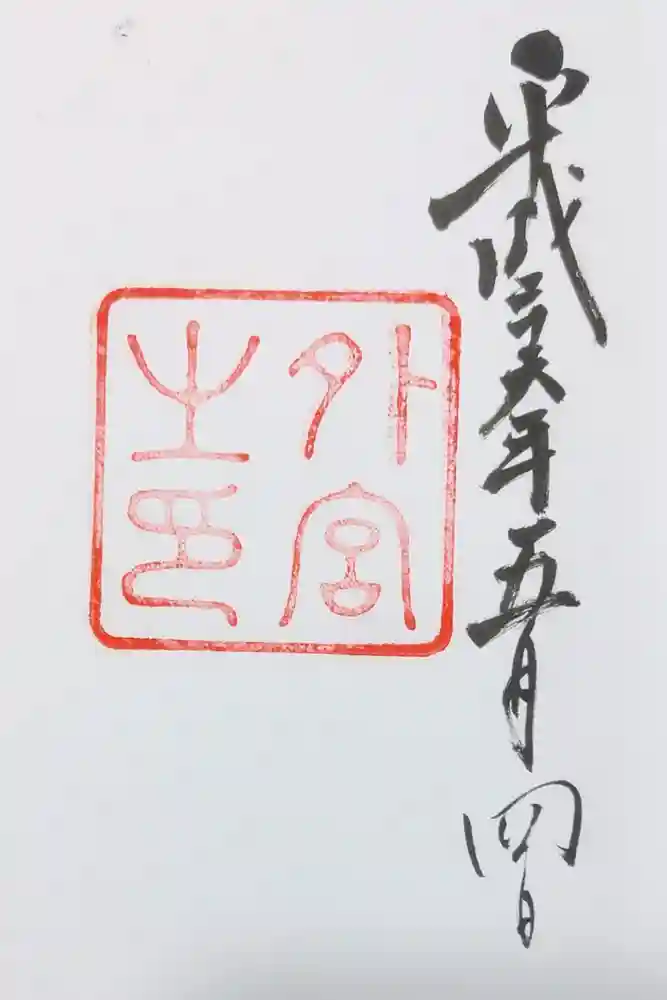 平成二十六年五月四日
外宮
之印